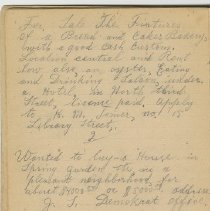 For Sale The Fixtures
of a Bread and Cakes Bakery
with a good Cash Custom.
Location central and Rent
Now also an oyster, Eating
and Drinking Saloon under
a Hotel, in North Third
Street, license paid. Apply
to R. M. No 15
Library Street.
2
Wanted to buy a House in
Spring Garden or in a
pleasant neighborhood, for
about $4000 or $5000. address
J. S. Democrat office.